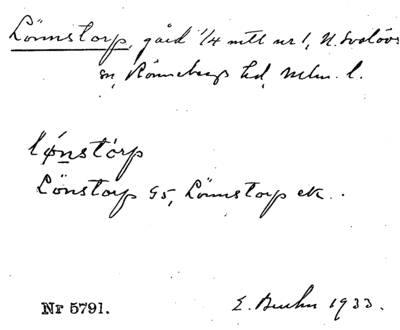 Lönnstorp, gård 1/4 mtl nr 1, N. Svalövs
sn, Rönnebergs hd, Mlm. l.
lǿnstórp
Lönstorp G5, Lönnstorp etc.
Nr 5791.
E. 1933.